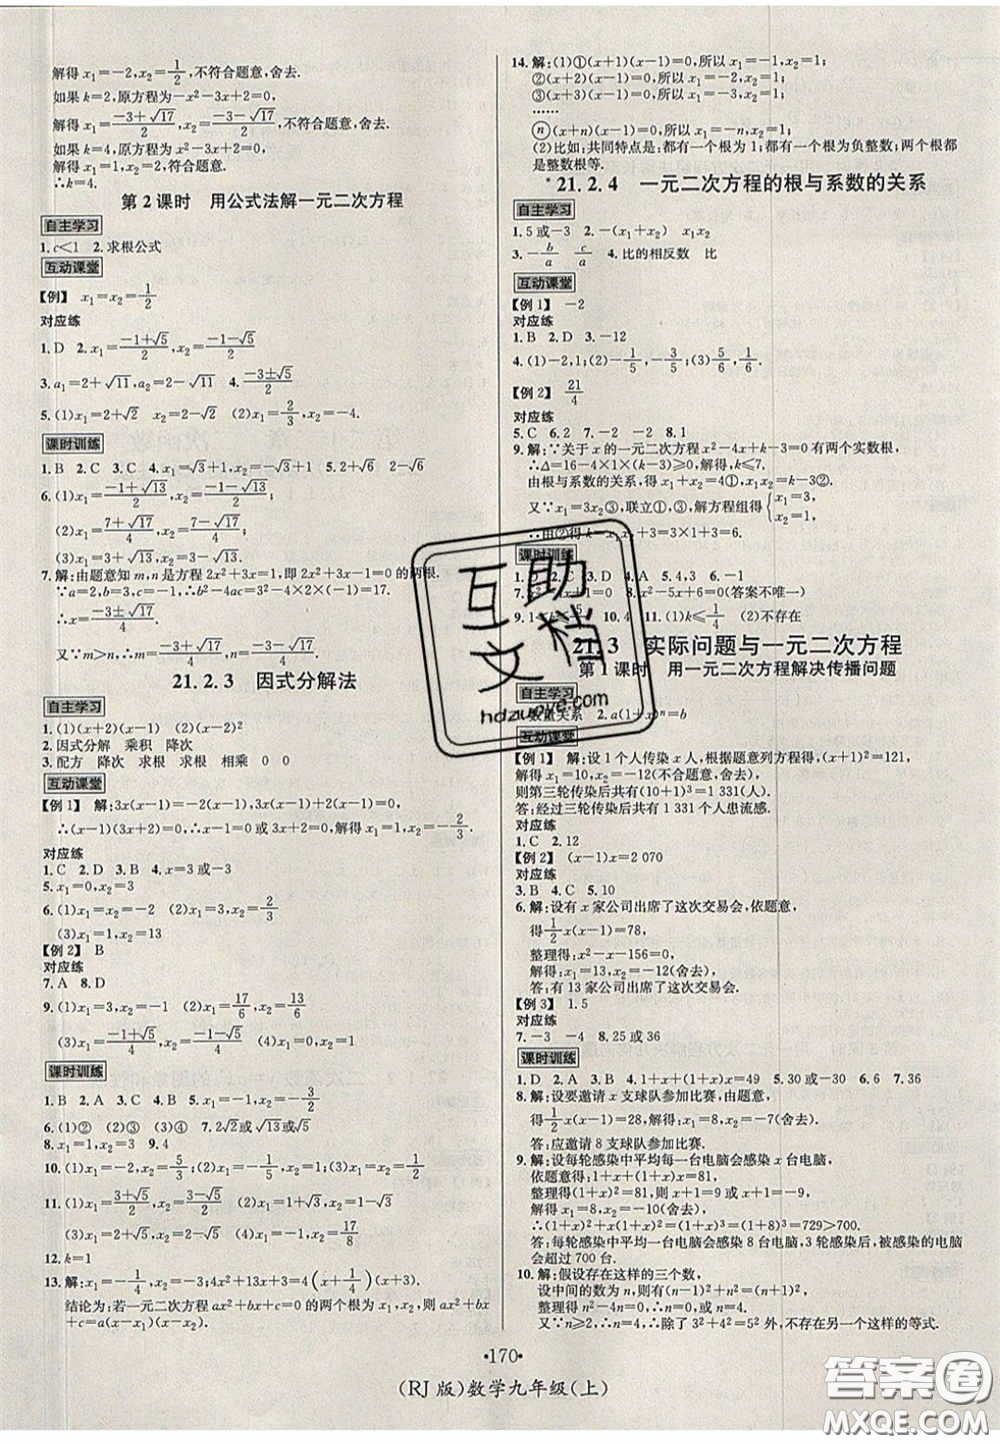 解得x₁=-2,x₂=1/2,不符合题意,舍去.
如果k=2,原方程为-x²-3x+2=0,
解得x₁=(-3+√17)/2,x₂=(-3-√17)/2,不符合题意,舍去.
如果k=4,原方程为x²-3x+2=0,
解得x₁=1,x₂=2,符合题意.
∴k=4.
第2课时 用公式法解一元二次方程
自主学习
1.c<1 2.求根公式
互动课堂
【例】 x₁=x₂=1/2
对应练
1.D 2.x₁=(-1+√5)/2,x₂=(-1-√5)/2
3.a₁=2+√11,a₂=2-√11 4.(-3±√5)/2
5.(1)x₁=2+√2,x₂=2-√2 (2)x₁=2/3,x₂=-4.
课时训练
1.B 2.C 3.C 4.x₁=√3+1,x₂=√3-1 5.2+√6 2-√6
6.(1)x₁=(-1+√13)/2,x₂=(-1-√13)/2
(2)x₁=(7+√17)/4,x₂=(7-√17)/4
(3)x₁=3+√13,x₂=3-√13
7.解:由题意知m,n是方程2x²+3x=1,即2x²+3x-1=0的两根.
∵a=2,b=3,c=-1,∴b²-4ac=3²-4×2×(-1)=17.
∴x=(-3±√17)/4.
又∵m>n,∴m=(-3+√17)/4,n=(-3-√17)/4.
21.2.3 因式分解法
自主学习
1.(1)(x+2)(x-1) (2)(x-2)²
2.因式分解 乘积 降次
3.配方 降次 求根 求根 相乘 0 0
互动课堂
【例1】 解:3x(x-1)=-2(x-1),3x(x-1)+2(x-1)=0
∴(x-1)(3x+2)=0,∴x-1=0或3x+2=0,解得x₁=1,x₂=-2/3.
对应练
1.C 2.D 3.B 4.x=3或-3
5.x₁=0,x₂=3
6.(1)x₁=1,x₂=-2 (2)x₁=3,x₂=2/3
(3)x₁=1,x₂=13
【例2】 B
对应练
7.A 8.D
9.(1)x₁=3,x₂=-1 (2)x₁=17/6,x₂=13/6
(3)x₁=(-1+√5)/4,x₂=(-1-√5)/4
课时训练
1.D 2.B 3.B 4.A 5.x₁=-1,x₂=-3/2
6.(1)② (2)③ (3)④ 7.2√2或√13或√5
8.x₁=1,x₂=3 9.4
10.(1)x₁=-2,x₂=5/3 (2)x₁=-6,x₂=1
11.(1)x₁=(3+√5)/2,x₂=(3-√5)/2 (2)x₁=1+√3,x₂=1-√3
(3)x₁=2+√5,x₂=2-√5 (4)x₁=-1,x₂=17/8
12.k=1
13.解:x₁=-1/4,x₂=-3;4x²+13x+3=4(x+1/4)(x+3).
结论为:若一元二次方程ax²+bx+c=0的两个根为x₁,x₂,则ax²+bx
+c=a(x-x₁)(x-x₂).
14.解:(1)①(x+1)(x-1)=0,所以x₁=-1,x₂=1;
②(x+2)(x-1)=0,所以x₁=-2,x₂=1;
③(x+3)(x-1)=0,所以x₁=-3,x₂=1;
……
ⓝ(x+n)(x-1)=0,所以x₁=-n,x₂=1;
(2)比如:共同特点是:都有一个根为1;都有一个根为负整数;两个根都
是整数根等.
*21.2.4 一元二次方程的根与系数的关系
自主学习
1.5或-3 2.-(x₁+x₂) x₁x₂
3.-b/a c/a 4.比的相反数 比
互动课堂
【例1】 -2
对应练
1.B 2.D 3.-12
4.(1)-2,1;(2)-1/5,-3/5;(3)6/5,-1/5.
【例2】 21/4
对应练
5.C 6.2 7.-2 -2 8.1
9.解:∵关于x的一元二次方程x²-4x+k-3=0有两个实数根,
∴Δ=16-4×1×(k-3)≥0,解得,k≤7.
由根与系数的关系,得x₁+x₂=4①,x₁x₂=k-3②.
又∵x₁=3x₂③,联立①,③,解方程组得{x₁=3, x₂=1.
∴由②得k=x₁x₂+3=3×1+3=6.
课时训练
1.D 2.C 3.D 4.A 5.4,3 6.-1
x²-5x+6=0(答案不唯一)
10.4 11.(1)k≤1/4 (2)不存在
21.3 实际问题与一元二次方程
第1课时 用一元二次方程解决传播问题
自主学习
1.数量关系 2.a(1+x)ⁿ=b
互动课堂
【例1】 解:设1个人传染x人,根据题意列方程得,(x+1)²=121,
解得x₁=10,x₂=-12(不合题意,舍去).
则第三轮传染后共有(10+1)³=1 331(人).
答:经过三轮传染后共有1 331个人患流感.
对应练
1.C 2.12
【例2】 (x-1)x=2 070
对应练
3.B 4.C 5.10
6.解:设有x家公司出席了这次交易会,依题意,
得1/2x(x-1)=78,
整理得:x²-x-156=0,
解得:x₁=13,x₂=-12(舍去).
答:有13家公司出席了这次交易会.
【例3】 1.5
对应练
7.-3 -4 8.25或36
课时训练
1.D 2.A 3.B 4.1+x+(1+x)x=49 5.30或-30 6.2 7.36
8.解:设要邀请x支球队参加比赛,由题意,
得1/2x(x-1)=28,解得:x₁=8,x₂=-7(舍去).
答:应邀请8支球队参加比赛.
9.解:设每轮感染中平均每一台电脑会感染x台电脑,
依题意得:1+x+(1+x)x=81,
整理得(1+x)²=81,则x+1=9或x+1=-9,
解得x₁=8,x₂=-10(舍去),
∴(1+x)²+x(1+x)²=(1+x)³=(1+8)³=729>700.
答:每轮感染中平均一台电脑会感染8台电脑,3轮感染后,被感染的电脑
会超过700台.
10.解:假设存在这样的三个数,
设中间的数为n,则有(n-1)²+n²=(n+1)²,
整理得n²-4n=0,∴n=0,n=4.
又∵n≥2,∴n=4,∴除了3²+4²=5²外,不存在另一个这样的等式.
·170·
(RJ版)数学九年级(上)
互助文档
hdzuoye.com
答案圈
MXQE.COM